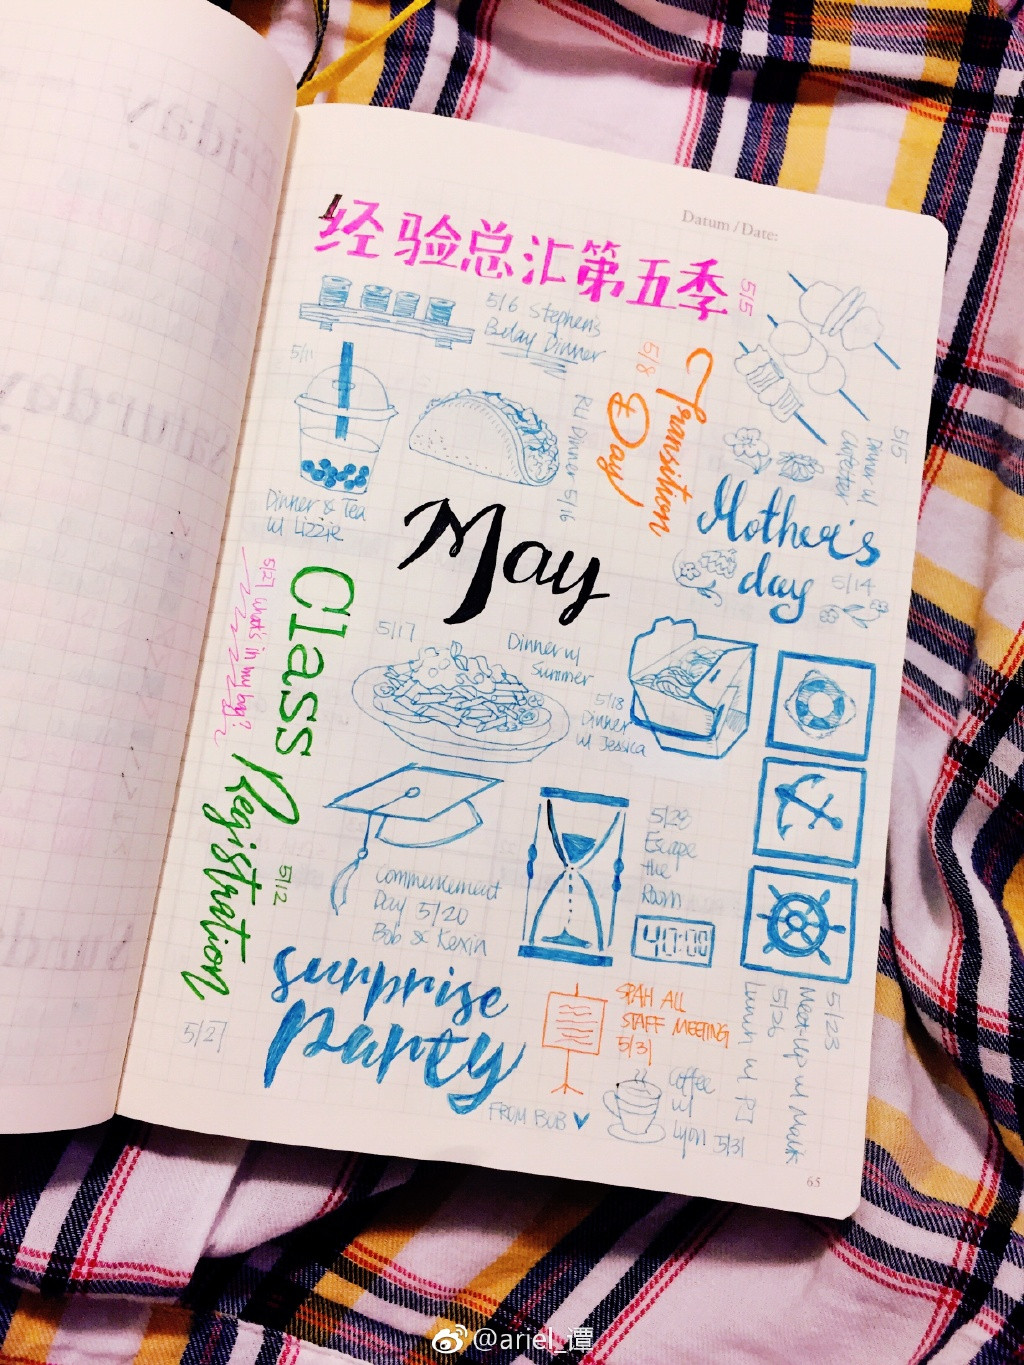 Datum / Date:
经验总汇第五季
5/5
5/6 Stephen's
Bday Dinner
5/8
Transition
Day
5/11
Dinner & Tea
w/ Lizzie
RH Dinner 5/16
5/5
Dinner w/
Mother's
day
5/14
May
5/27 What's in my bag?
Class
Registration
5/12
5/17
Dinner w/
Summer
5/18
Dinner
w/ Jessica
Commencement
Day 5/20
Bob & Kexin
5/28
Escape
the
Room
40:00
surprise
party
5/27
FROM BOB
SPAH ALL
STAFF MEETING
5/31
Coffee
w/
Lyon 5/31
5/23
Meet-Up w/ Malik
5/26
Lunch w/ PJ
65
Friday
Saturday
Sunday
@ariel_谭